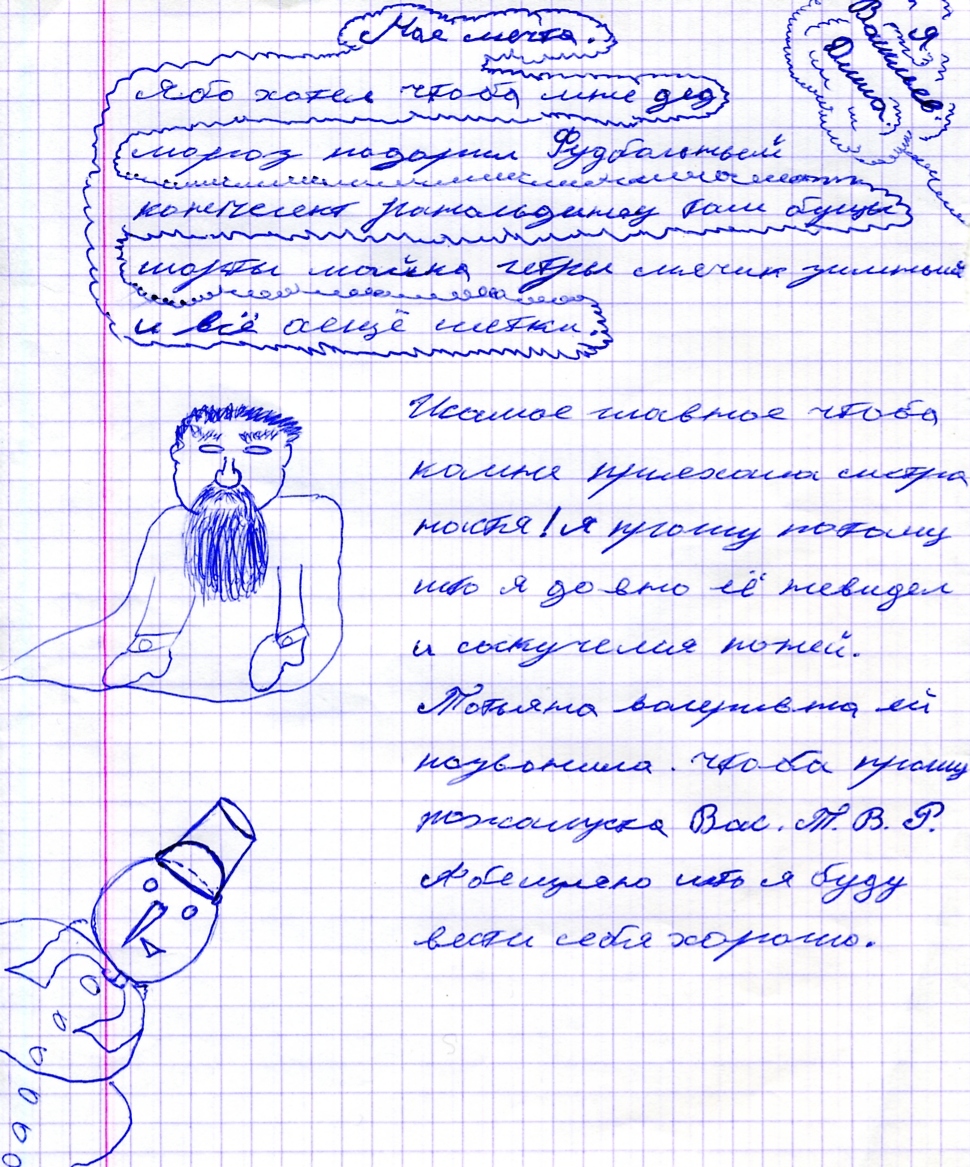 Мае мечта.
Я
Васильев
Дима.
Ябо хотел чтоба мне дед
мороз подорил Фудбольный
комплект рональдиньоу там буцы
шорты майка гетры смячик зимний
и всё аещё шетки.
Исамое главное чтоба
камне приехала систра
настя! я прошу потому
што я довно её невидел
и соскучелия поней.
Тотьяна валеривна ей
позвонила. чтоба прошу
пожалуста Вас. Т. В. Р.
Я обещяю што я буду
вести себя хорошо.